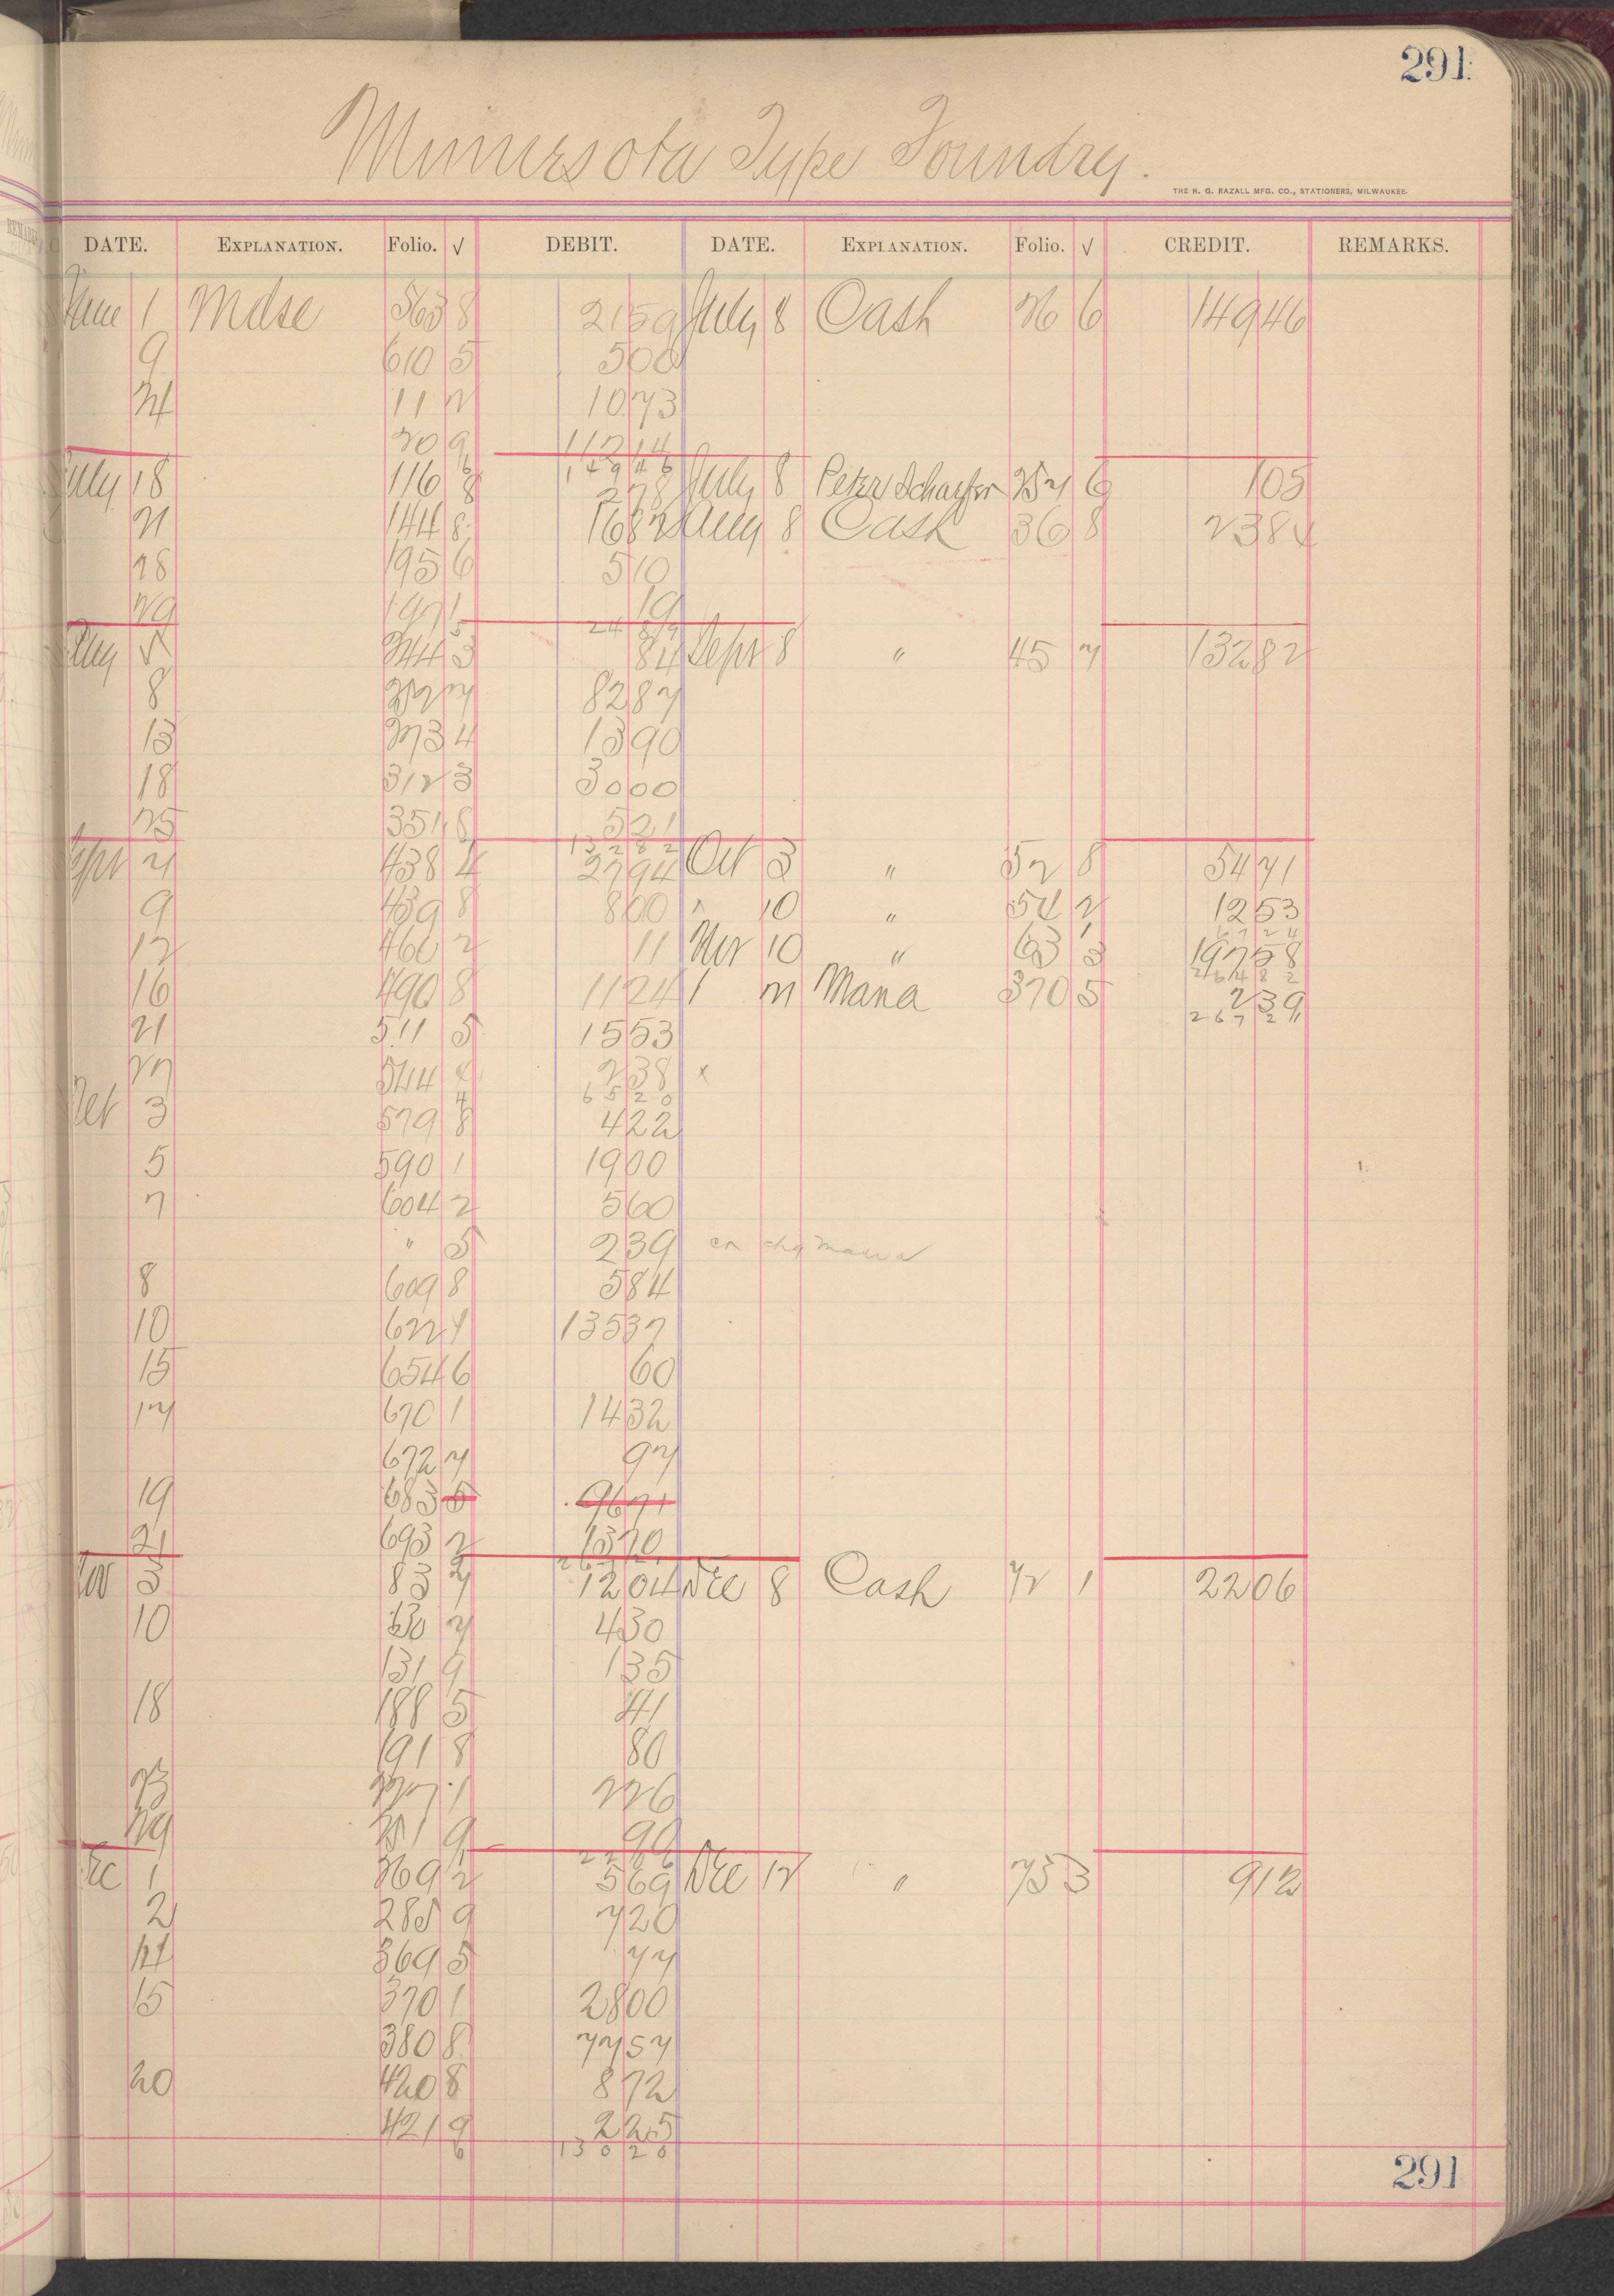 291
Minnesota Type Foundry.
THE H. G. RAZALL MFG. CO., STATIONERS, MILWAUKEE.
DATE. EXPLANATION. Folio. √ DEBIT. DATE. EXPLANATION. Folio. √ CREDIT. REMARKS.
June 1 Mdse 563 8 21 59 July 8 Cash 26 6 149 46
9 610 5 5 00
24 11 2 10 73
20 9 112 14
149 46
July 18 116 8 2 78 July 8 Peter Schaefer 257 6 1 05
21 144 8 16 82 Aug 8 Cash 36 8 23 84
28 195 6 5 10
29 197 1 19
24 89
Aug 5 244 3 84 Sept 8 " 45 7 132 82
8 252 7 82 87
13 273 4 13 90
18 312 3 30 00
25 351 8 5 21
132 82
Sept 7 438 4 27 94 Oct 3 " 52 8 54 71
9 439 8 8 00 " 10 " 54 2 12 53
67 24
12 460 2 11 Nov 10 " 63 3 197 58
264 82
16 490 8 11 24 1 m Mana 370 5 2 39
267 21
21 511 5 15 53
27 544 4 2 38 x
65 20
Oct 3 579 8 4 22
5 590 1 19 00
7 604 2 5 60
" 5 2 39 cr chg Mana
8 609 8 5 84
10 622 4 135 37
15 654 6 60
17 670 1 14 32
672 7 97
19 683 5 96 71
21 693 2 13 70
Nov 3 83 7 12 04 Dec 8 Cash 72 1 22 06
10 130 7 4 30
131 9 1 35
18 188 5 41
191 8 80
23 227 1 2 26
29 251 9 90
22 06
Dec 1 269 2 5 69 Dec 12 " 75 3 9 12
2 285 9 7 20
14 369 5 77
15 370 1 28 00
380 8 77 57
20 420 8 8 72
421 9 2 25
130 20
291